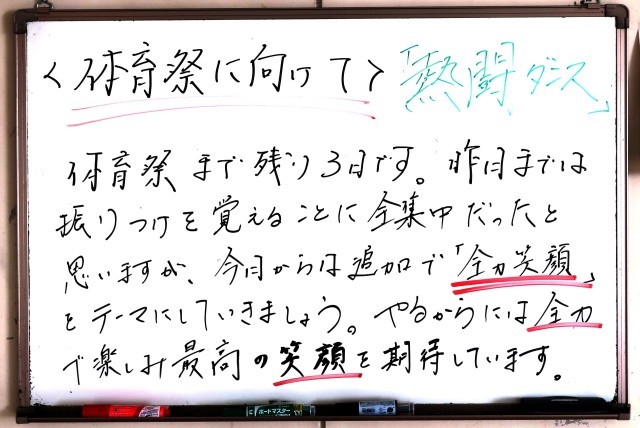 ＜体育祭に向けて＞「熱闘ダンス」
体育祭まで残り3日です。昨日までは
振りつけを覚えることに全集中だったと
思いますが、今日からは追加で「全力笑顔」
をテーマにしていきましょう。やるからには全力
で楽しみ最高の笑顔を期待しています。
ボードマスター